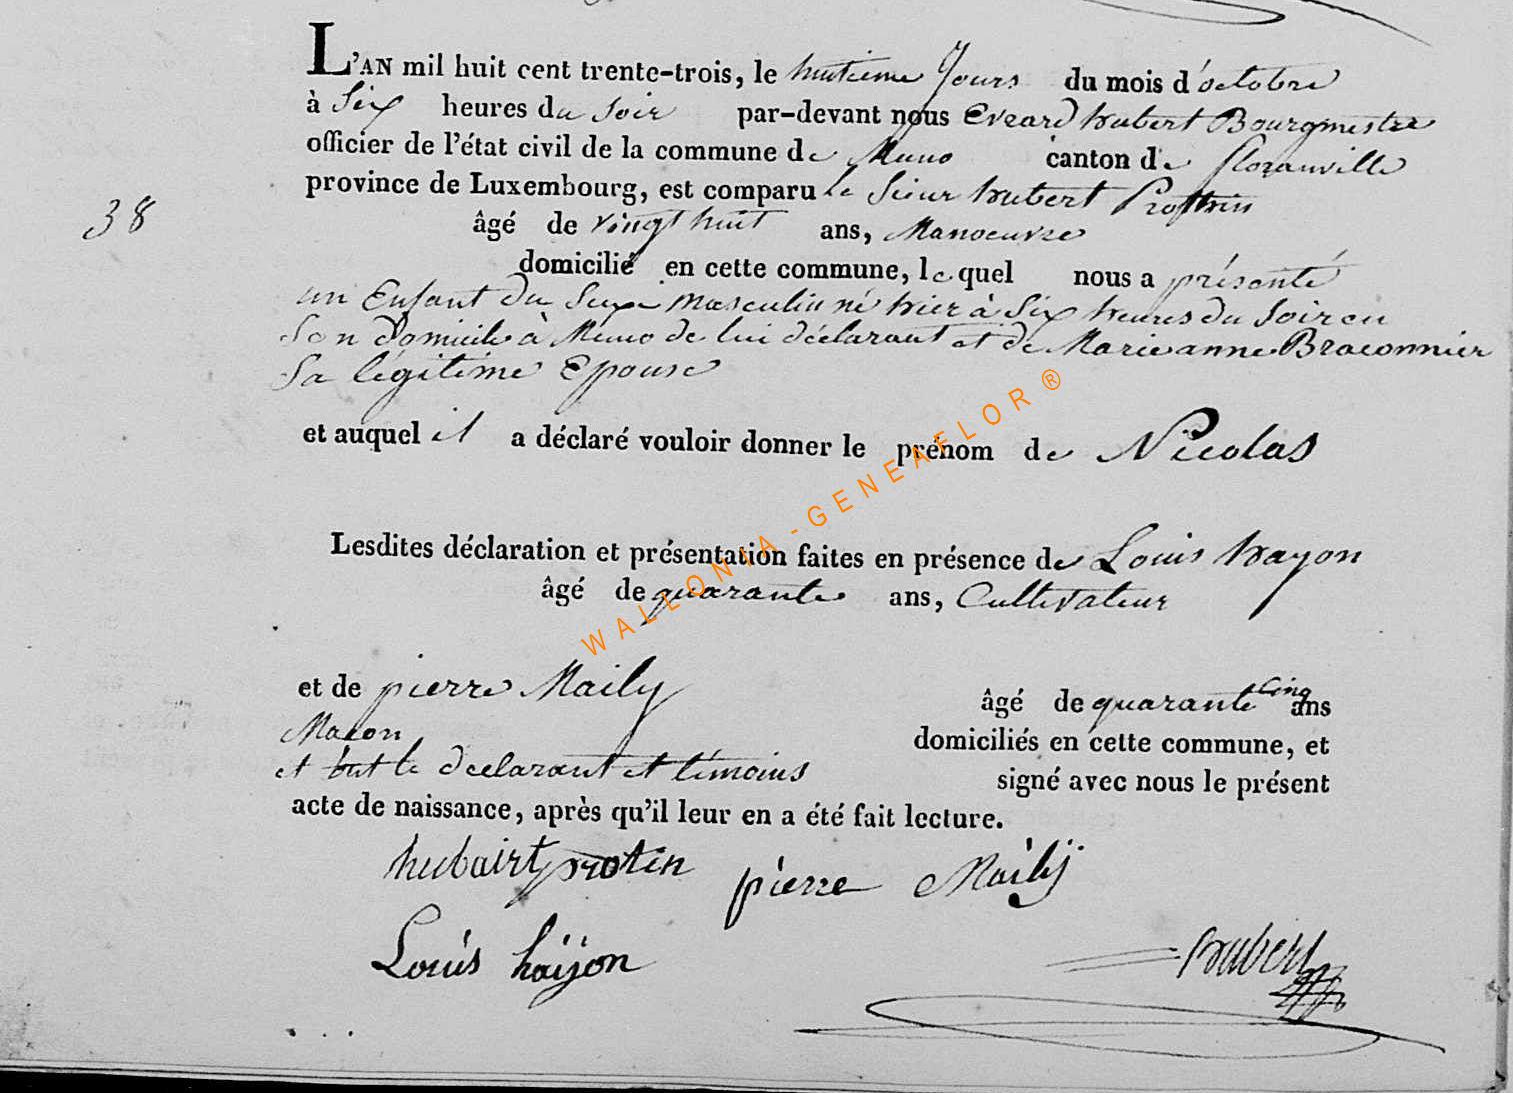 L'AN mil huit cent trente-trois, le huitieme Jours du mois d'octobre
à Six heures du Soir par-devant nous Evrard hubert Bourgmestre
officier de l'état civil de la commune de Muno canton de florenville
province de Luxembourg, est comparu le Sieur hubert
38
âgé de vingt huit ans, Manoeuvre
domicilié en cette commune, lequel nous a présenté
un Enfant du Sexe masculin né hier à Six heures du Soir en
Son domicile à Muno de lui déclarant et de Marie anne Braconnier
Sa légitime Epouse
et auquel il a déclaré vouloir donner le prénom de Nicolas
Lesdites déclaration et présentation faites en présence de Louis hayon
âgé de quarante ans, Cultivateur
et de pierre Maily âgé de quarante cinq ans
Macon domiciliés en cette commune, et
et le declarant et témoins signé avec nous le présent
acte de naissance, après qu'il leur en a été fait lecture.
hubairt protin pierre Maily
Louis haÿon hubert
WALLONIA-GENEAFLOR®